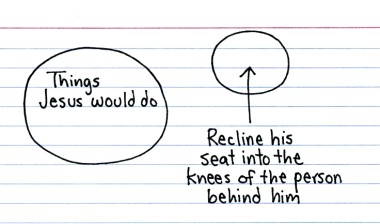 Things
Jesus would do
Recline his
seat into the
knees of the person
behind him